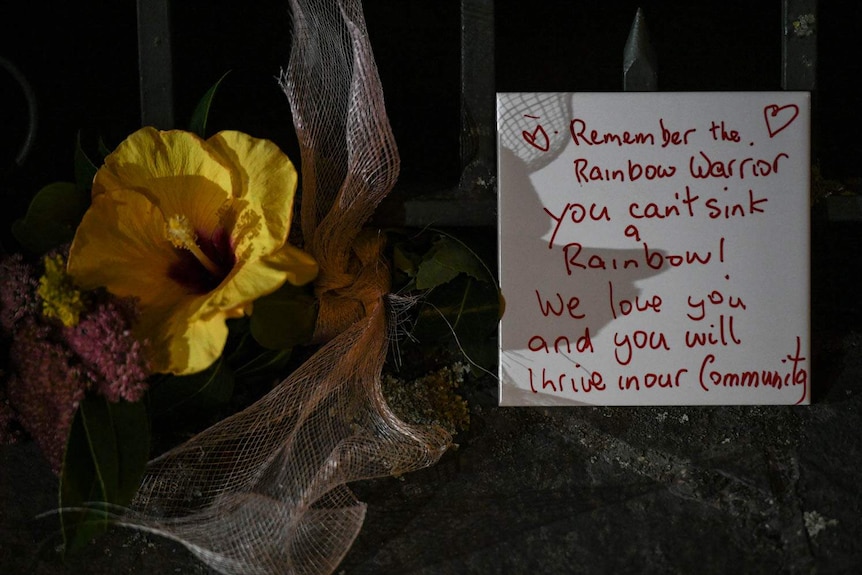 Remember the.
Rainbow Warrior
you can't sink
a
Rainbow!
We love you
and you will
thrive in our Community